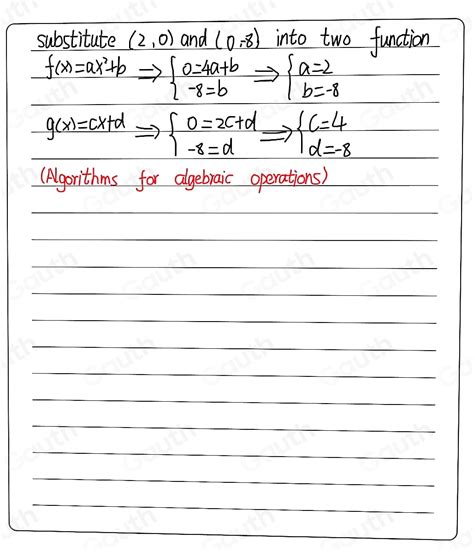 substitute (2,0) and (0,-8) into two function
f(x)=ax²+b ⇒ { 0=4a+b ⇒ { a=2
-8=b b=-8
g(x)=cx+d ⇒ { 0=2c+d ⇒ { c=4
-8=d d=-8
(Algorithms for algebraic operations)
Gauth